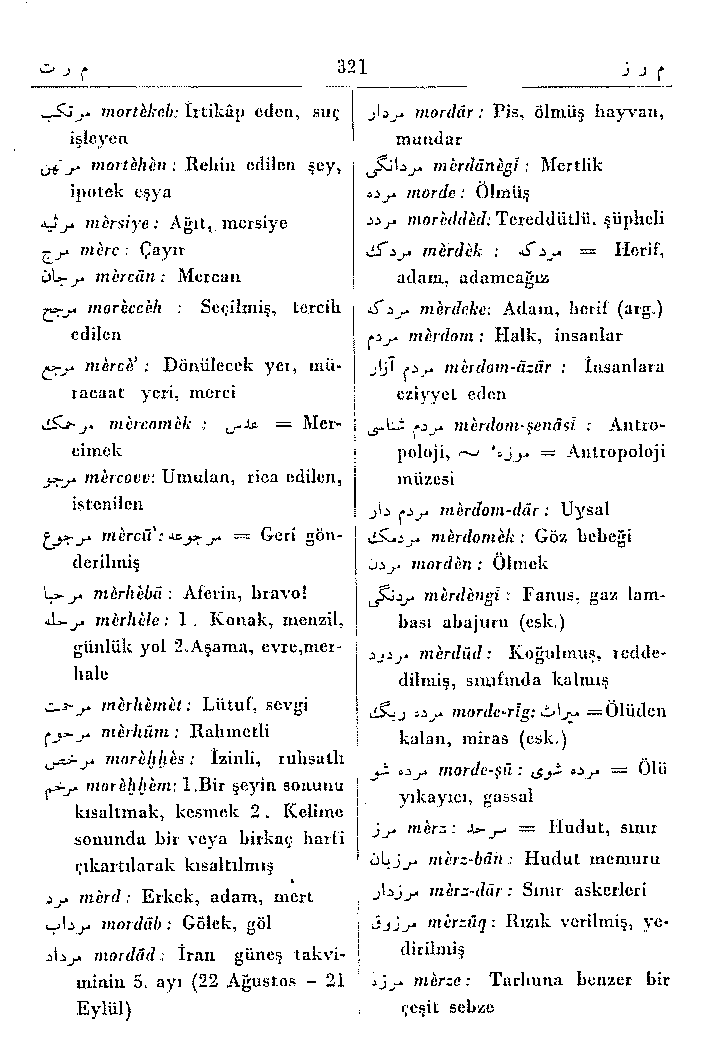 م ر ت 321 م ر ز
مرتكب mortèkeb: İrtikâp eden, suç
işleyen
مرتهن mortèhèn : Rehin edilen şey,
ipotek eşya
مرثيه mèrsiye : Ağıt, mersiye
مرج mèrc : Çayır
مرجان mèrcân : Mercan
مرجح morèccèh : Seçilmiş, tercih
edilen
مرجع mèrcè' : Dönülecek yer, mü-
racaat yeri, merci
مرجمك mèrcomèk : عدس = Mer-
cimek
مرجو mèrcovv: Umulan, rica edilen,
istenilen
مرجوع mèrcû' : مرجوعه = Geri gön-
derilmiş
مرحبا mèrhèbâ : Aferin, bravo!
مرحله mèrhèle : 1 . Konak, menzil,
günlük yol 2.Aşama, evre,mer-
hale
مرحمت mèrhèmèt : Lütuf, sevgi
مرحوم mèrhûm : Rahmetli
مرخص morèḫḫès : İzinli, ruhsatlı
مرخم morèḫḫèm: 1.Bir şeyin sonunu
kısaltmak, kesmek 2 . Kelime
sonunda bir veya birkaç harfi
çıkartılarak kısaltılmış
مرد mèrd : Erkek, adam, mert
مرداب mordâb : Gölek, göl
مرداد mordâd : İran güneş takvi-
minin 5. ayı (22 Ağustos – 21
Eylül)
مردار mordâr : Pis, ölmüş hayvan,
mundar
مردانگى mèrdânègî : Mertlik
مرده morde : Ölmüş
مردد morèddèd: Tereddütlü, şüpheli
مردك mèrdèk : مردكه = Herif,
adam, adamcağız
مردكه mèrdeke: Adam, herif (arg.)
مردم mèrdom : Halk, insanlar
مردم آزار mèrdom-âzâr : İnsanlara
eziyyet eden
مردم شناسى mèrdom-şenâsî : Antro-
poloji, ~ موزه = Antropoloji
müzesi
مردم دار mèrdom-dâr : Uysal
مردمك mèrdomèk : Göz bebeği
مردن mordèn : Ölmek
مردنگى mèrdèngî : Fanus, gaz lam-
bası abajuru (esk.)
مردود mèrdûd : Koğulmuş, redde-
dilmiş, sınıfında kalmış
مرده ريگ morde-rîg: ميراث =Ölüden
kalan, miras (esk.)
مرده شو morde-şû : مرده شوى = Ölü
yıkayıcı, gassal
مرز mèrz : سرحد = Hudut, sınır
مرزبان mèrz-bân : Hudut memuru
مرزدار mèrz-dâr : Sınır askerleri
مرزوق mèrzûq : Rızık verilmiş, ye-
dirilmiş
مرزه mèrze : Tarhuna benzer bir
çeşit sebze